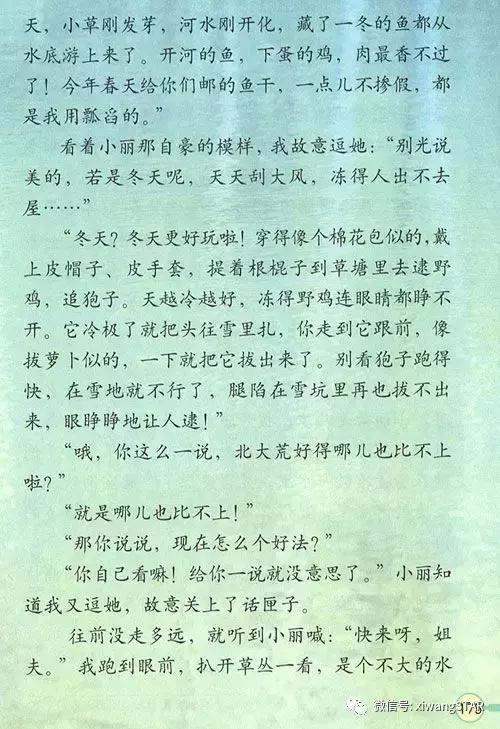 天，小草刚发芽，河水刚开化，藏了一冬的鱼都从
水底游上来了。开河的鱼，下蛋的鸡，肉最香不过
了！今年春天给你们邮的鱼干，一点儿不掺假，都
是我用瓢舀的。”
看着小丽那自豪的模样，我故意逗她：“别光说
美的，若是冬天呢，天天刮大风，冻得人出不去
屋……”
“冬天？冬天更好玩啦！穿得像个棉花包似的，戴
上皮帽子、皮手套，提着根棍子到草塘里去逮野
鸡，追狍子。天越冷越好，冻得野鸡连眼睛都睁不
开。它冷极了就把头往雪里扎，你走到它跟前，像
拔萝卜似的，一下就把它拔出来了。别看狍子跑得
快，在雪地就不行了，腿陷在雪坑里再也拔不出
来，眼睁睁地让人逮！”
“哦，你这么一说，北大荒好得哪儿也比不上
啦？”
“就是哪儿也比不上！”
“那你说说，现在怎么个好法？”
“你自己看嘛！给你一说就没意思了。”小丽知
道我又逗她，故意关上了话匣子。
往前没走多远，就听到小丽喊：“快来呀，姐
夫。”我跑到眼前，扒开草丛一看，是个不大的水
微信号: xiwang3TAR
175